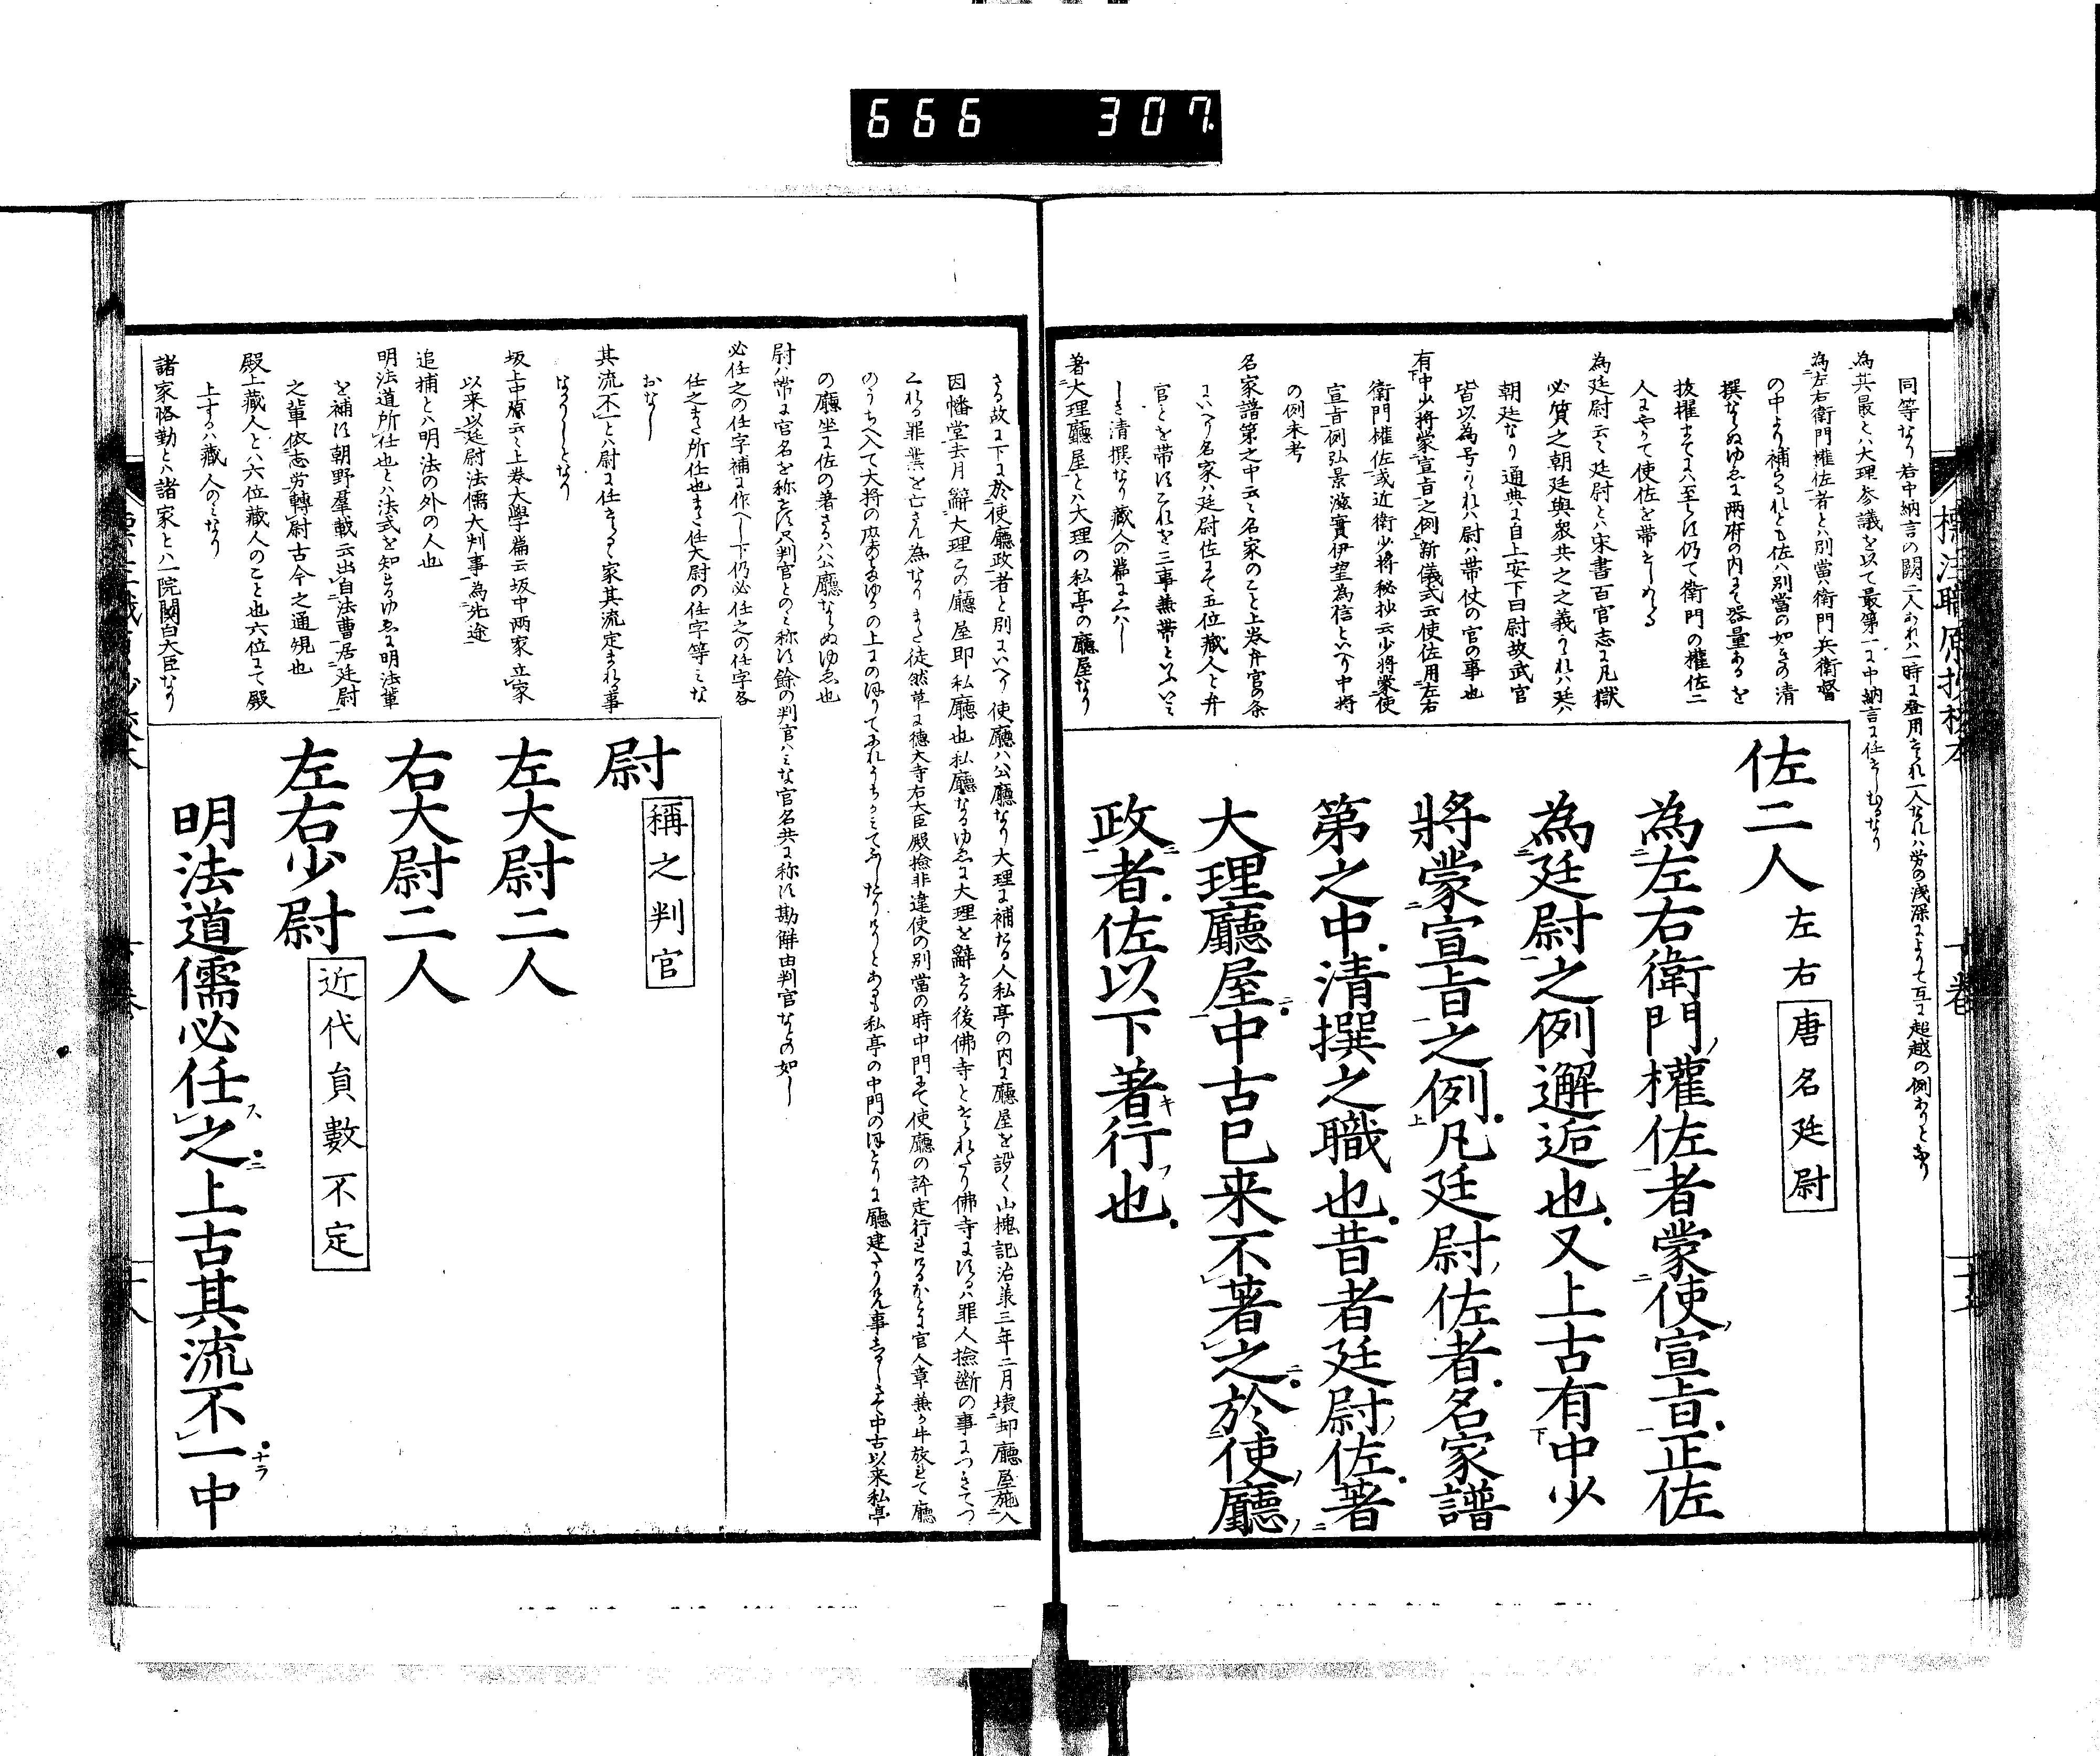 666 307
標注職原抄校本
下巻
同等なり若中納言の闕二人あれハ一時に登用せられ一人なれハ労の浅深によりて互に超越の例ありとなり
為其最とハ大理参議を以て最第一に中納言に任せしむるなり
為左右衛門権佐者とハ別當ハ衛門兵衛督
の中より補らるれとも佐ハ別當の如きの清
撰ならぬゆゑに両府の内にて器量あるを
抜擢するまてにハ至らす仍て衛門の権佐二
人にやかて使佐を帯せしめらる
為廷尉云々廷尉とハ宋書百官志に凡獄
必質之朝廷與衆共之之義とあれハ廷ハ
朝廷なり通典に自上安下曰尉故武官
皆以為号とあれハ尉ハ帯仗の官の事也
有中少将蒙宣旨之例新儀式云使佐用左右
衛門権佐或近衛少将秘抄云少将蒙使
宣旨例弘景滋實伊望為信といへり中将
の例未考
名家譜第之中云々名家のこと上巻弁官の条
にいへり名家ハ廷尉佐にて五位蔵人と弁
官とを帯すこれを三事兼帯といふいと
しき清撰なり蔵人の篇にいへし
著大理廳屋とハ大理の私亭の廳屋なり
佐二人 左右 唐名廷尉
為左右衛門權佐者蒙使宣旨正佐
為廷尉之例邂逅也又上古有中少
將蒙宣旨之例凡廷尉佐者名家譜
第之中清撰之職也昔者廷尉佐著
大理廳屋中古已来不著之於使廳
政者佐以下著行也
さる故に下に於使廳政者と別にいへり使廳ハ公廳なり大理に補たる人私亭の内に廳屋を設く山槐記治承三年二月壊却廳屋施入
因幡堂去月辭大理この廳屋即私廳也私廳なるゆゑに大理を辭する後佛寺とせられたり佛寺にするハ罪人撿断の事につきてつ
くれる罪業を亡さん為なりまた徒然草に徳大寺右大臣殿撿非違使の別當の時中門にて使廳の評定行はれけるほとに官人章兼か牛放れて廳
のうちへ入て大将の座のはまゆかの上にのほりてにれうちかみてふしたりけりとあるも私亭の中門のほとりに廳建たりけん事しるしさて中古以来私亭
の廳坐に佐の著さるハ公廳ならぬゆゑ也
尉ハ常に官名を称せす只判官とのミ称す餘の判官ハミな官名共に称す勘解由判官なとの如し
必任之の任字補に作へし下仍必任之の任字各
任之また所任也また任大尉の任字等ミな
おなし
其流不一とハ尉に任せらるゝ家其流定まれる事
なかりしとなり
坂上中原云々上巻大學篇云坂中両家立家
以来以廷尉法儒大判事為先途
追捕とハ明法の外の人也
明法道所任也とハ法式を知たるゆゑに明法輩
を補す朝野羣載云出自法曹居廷尉
之輩依志労轉尉古今之通規也
殿上蔵人とハ六位蔵人のこと也六位にて殿
上するハ蔵人のミなり
諸家恪勤とハ諸家とハ一院関白大臣なり
尉 稱之判官
左大尉二人
右大尉二人
左右少尉 近代員數不定
明法道儒必任之上古其流不一中